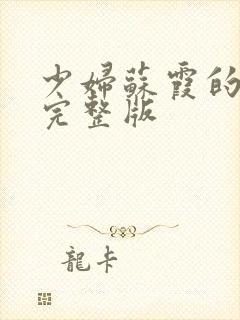 少婦蘇霞的
完整版
龍卡